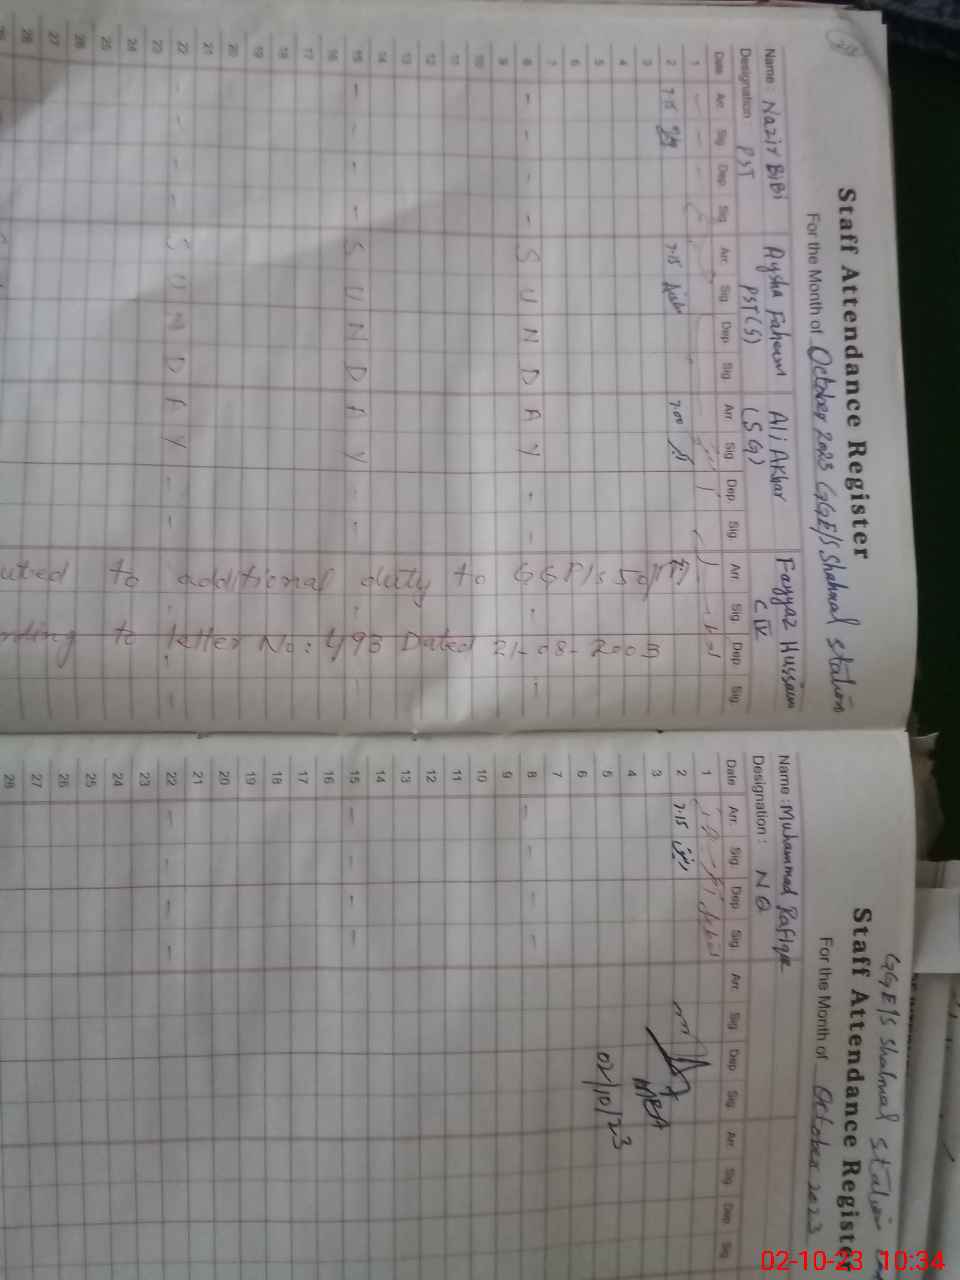 Staff Attendance Register
For the Month of October 2023 GGE/S Shahnal station
Name: Nazir BiBi Aysha Faheem Ali Akbar Fayyaz Hussain
Designation: PST PST(S) (S G) C IV
Date Arr. Sig. Dep. Sig. Arr. Sig. Dep. Sig. Arr. Sig. Dep. Sig. Arr. Sig. Dep. Sig.
1
2 7.15 7.15 7.00
3
4
5
6
7
8 - - - - S U N D A Y - - - -
9
10
11
12
13
14
15 - - - - S U N D A Y - - - -
16
17
18
19
20
21
22 - - - - S U N D A Y - - - -
23
24
25
26
27
28
uted to additional duty to GGP/S
rding to letter No: 493 Dated 21-08-2003
GGE/S Shahnal station
Staff Attendance Register
For the Month of October 2023
Name: Muhammad Rafique
Designation: N Q
Date Arr. Sig. Dep. Sig. Arr. Sig. Dep. Sig. Arr. Sig. Dep. Sig.
1
2 7.15 رفیق
3
4
5
6
7
8 - - - -
9
10
11
12
13
14
15 - - - -
16
17
18
19
20
21
22 - - - -
23
24
25
26
27
28
MEA
02/10/23
02-10-23 10:34